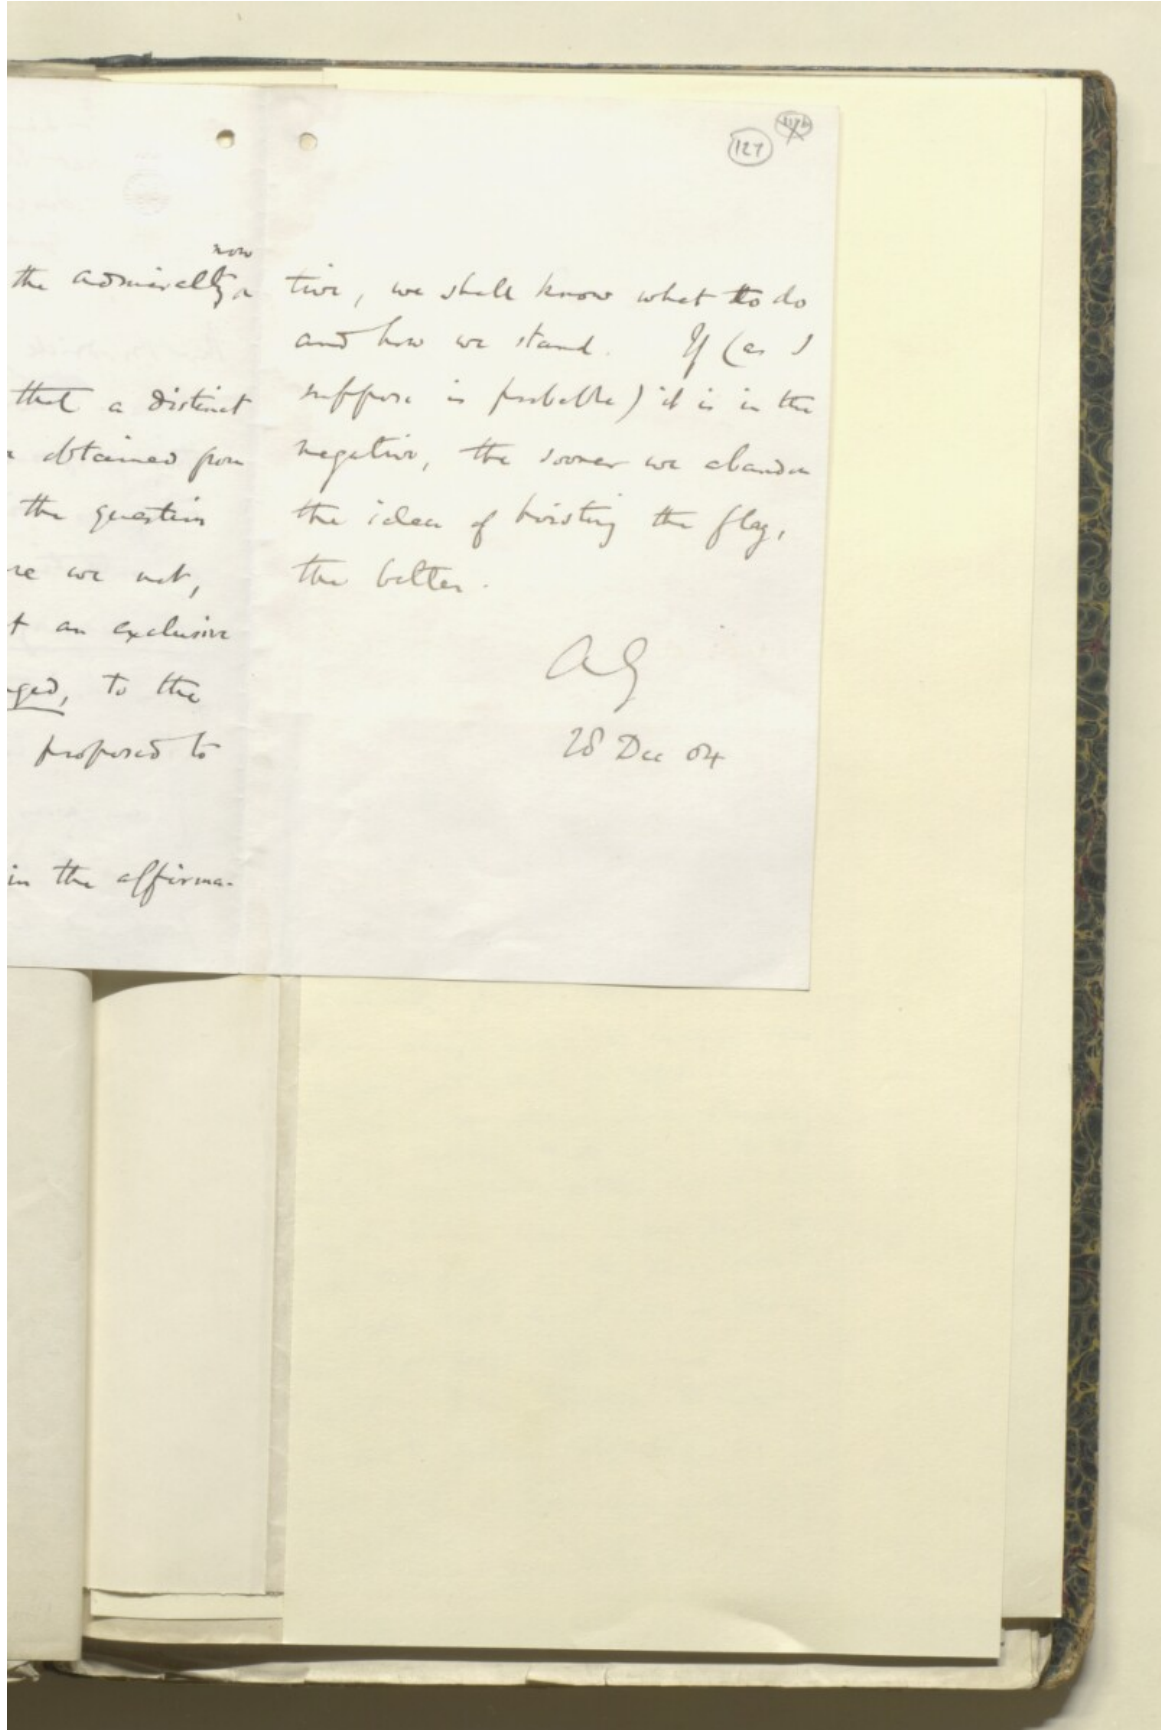 127
now
the Admiralty
that a distinct
obtained from
the question
we not,
an exclusive
ged, to the
proposed to
in the affirma-
tive, we shall know what to do
and how we stand. If (as I
suppose is probable) it is in the
negative, the sooner we abandon
the idea of hoisting the flag,
the better.
AG
28 Dec 04